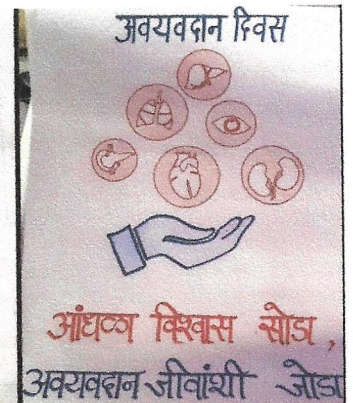 अवयवदान दिवस
आंधळा विश्वास सोडा,
अवयवदान जीवांशी जोडा